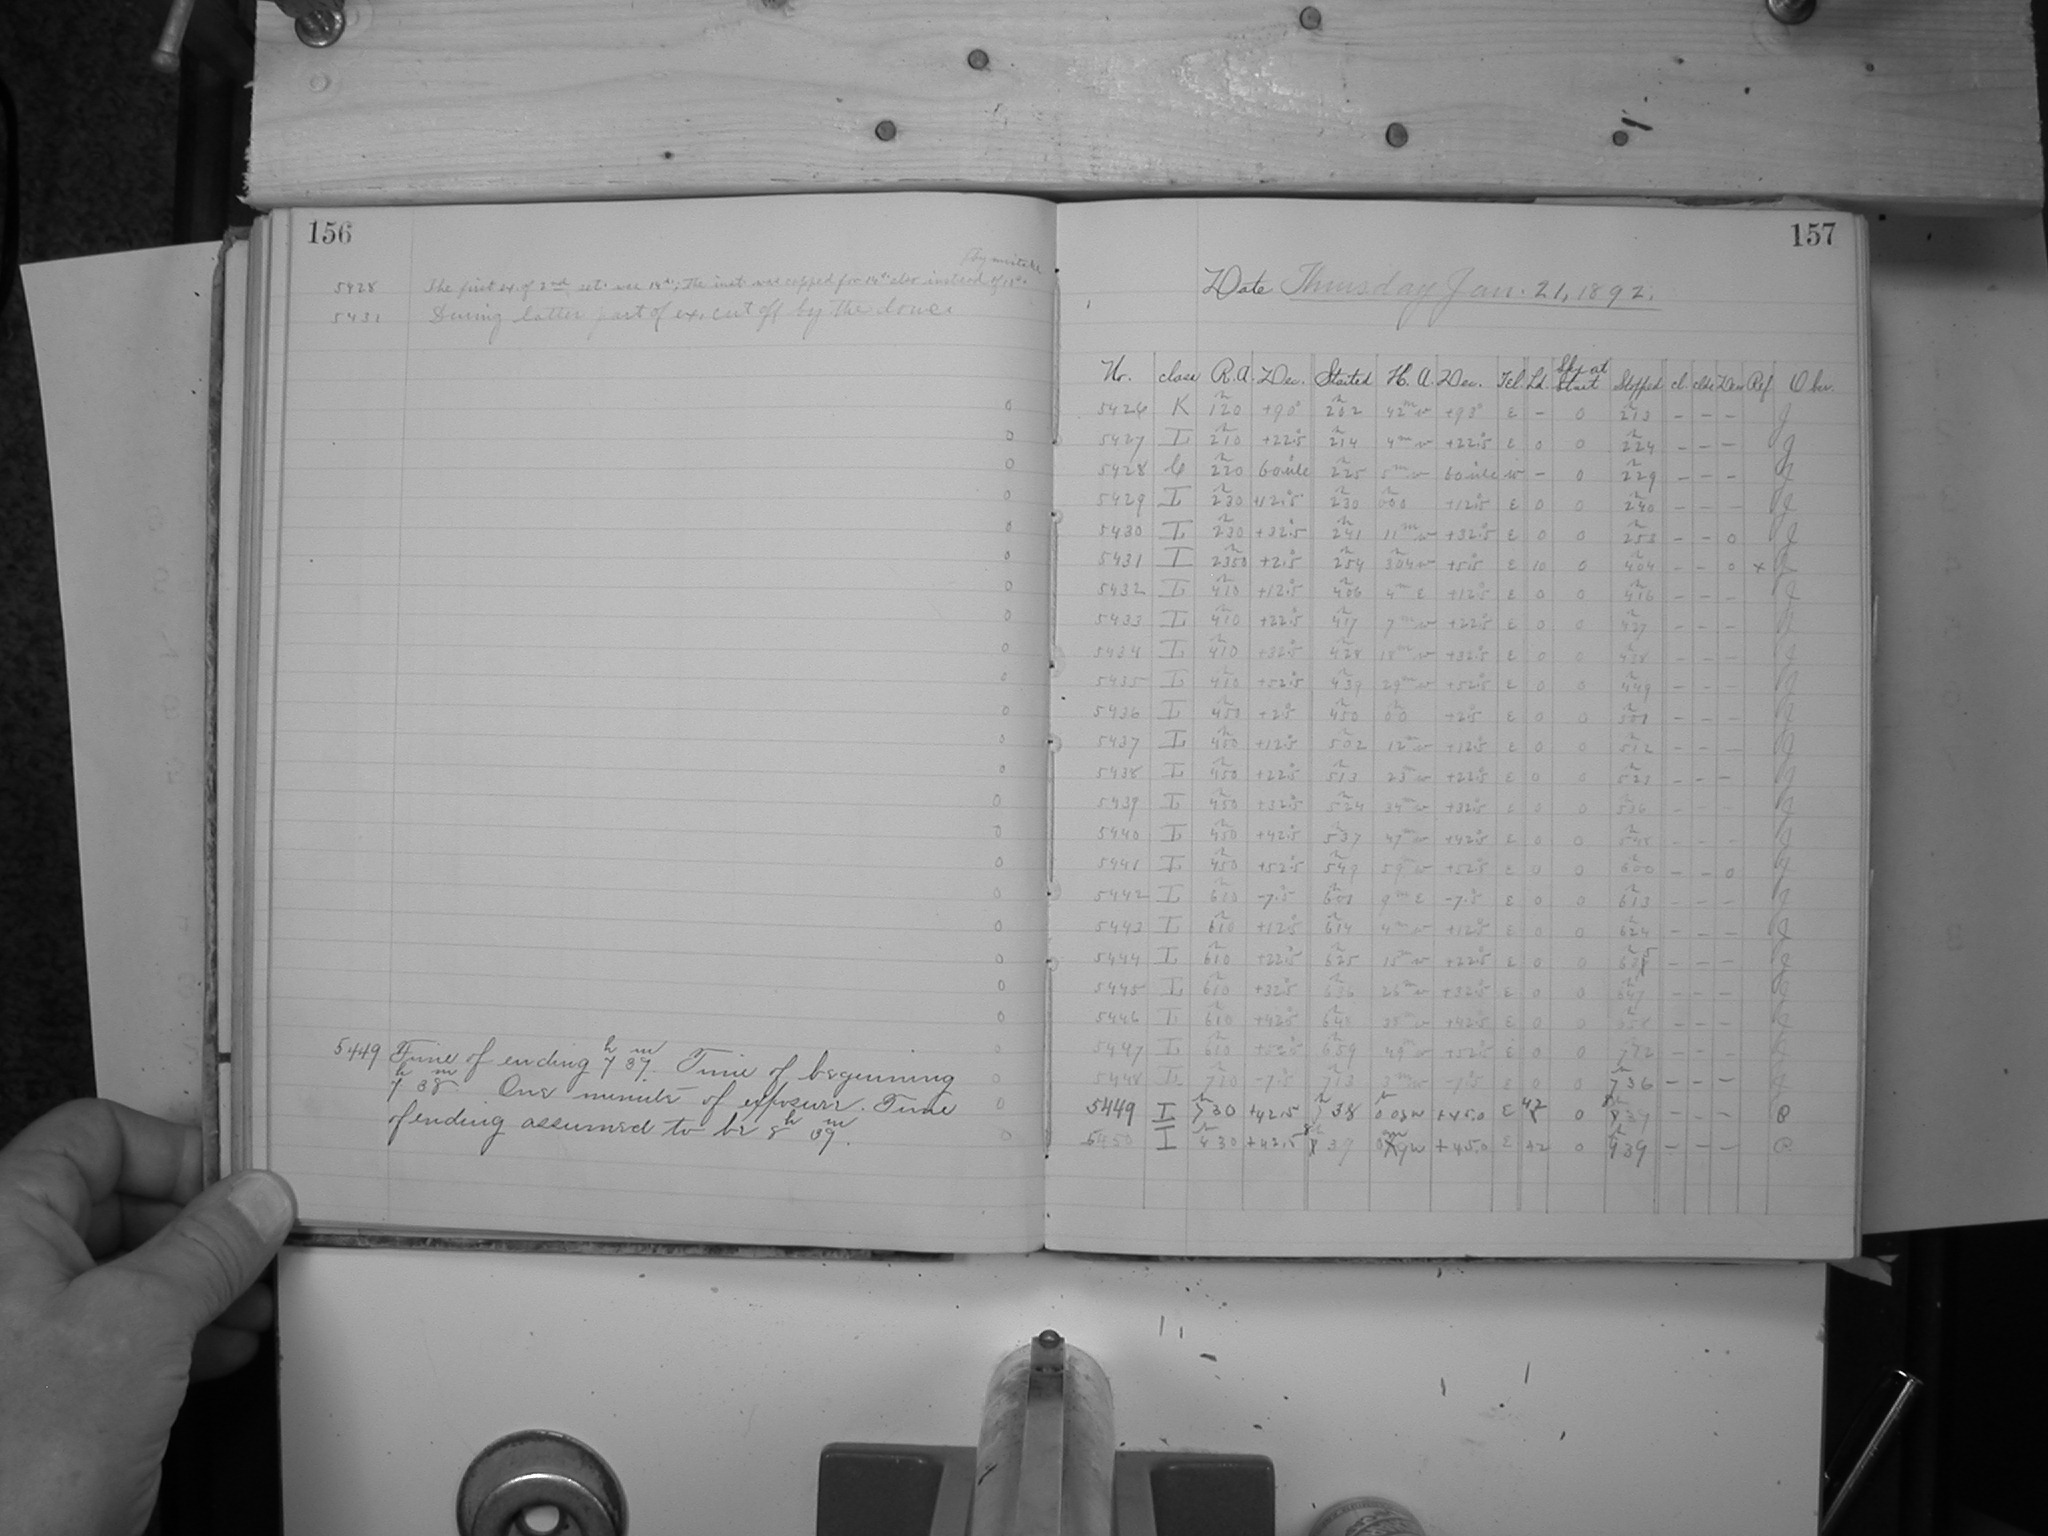 156
By mistake
5428 The first ex. of 2nd set was 14s; the inst was capped for 14s also instead of
5431 During latter part of ex. cut off by the dome
5449 Time of ending 7h 39m. Time of beginning
7h 38m. One minute of exposure. Time
of ending assumed to be 8h 39m.
157
Date Thursday Jan. 21, 1892.
Nr. class R.A. Dec. Started H.A. Dec. Tel. Ld. Sky at Start Stopped cl. clk Dew Ref Obsr.
0 5426 K 120 +90° 202 42m w +93° E - 0 213 - - - J
0 5427 I 210 +22.5 214 4m w +22.5 E 0 0 224 - - - J
0 5428 C 220 60 ule 225 5m w 60 ule w - 0 229 - - - J
0 5429 I 230 +12.5 230 000 +12.5 E 0 0 240 - - - J
0 5430 I 230 +32.5 241 11m w +32.5 E 0 0 253 - - 0 J
0 5431 I 2350 +2.5 254 304w +5.5 E 10 0 404 - - 0 x J
0 5432 I 410 +12.5 406 4m E +12.5 E 0 0 416 - - - J
0 5433 I 410 +22.5 417 7m w +22.5 E 0 0 427 - - - J
0 5434 I 410 +32.5 428 18m w +32.5 E 0 0 438 - - - J
0 5435 I 410 +52.5 439 29m w +52.5 E 0 0 449 - - - J
0 5436 I 450 +2.5 450 00 +2.5 E 0 0 501 - - - J
0 5437 I 450 +12.5 502 12m w +12.5 E 0 0 512 - - - J
0 5438 I 450 +22.5 513 23m w +22.5 E 0 0 523 - - - J
0 5439 I 450 +32.5 524 34m w +32.5 E 0 0 536 - - - J
0 5440 I 450 +42.5 537 47m w +42.5 E 0 0 548 - - - J
0 5441 I 450 +52.5 549 59m w +52.5 E 0 0 600 - - 0 J
0 5442 I 610 -7.5 601 9m E -7.5 E 0 0 613 - - - J
0 5443 I 610 +12.5 614 4m w +12.5 E 0 0 624 - - - J
0 5444 I 610 +22.5 625 15m w +22.5 E 0 0 635 - - - J
0 5445 I 610 +32.5 636 26m w +32.5 E 0 0 647 - - - J
0 5446 I 610 +42.5 648 38m w +42.5 E 0 0 658 - - - J
0 5447 I 610 +52.5 659 49m w +52.5 E 0 0 712 - - - J
0 5448 I 710 -7.5 713 3m w -7.5 E 0 0 736 - - - J
0 5449 I 730 +42.5 738 0 08w +45.0 E 42 0 839 - - -
0 5450 I +42.5 839 +45.0 E 42 0 939 - - -